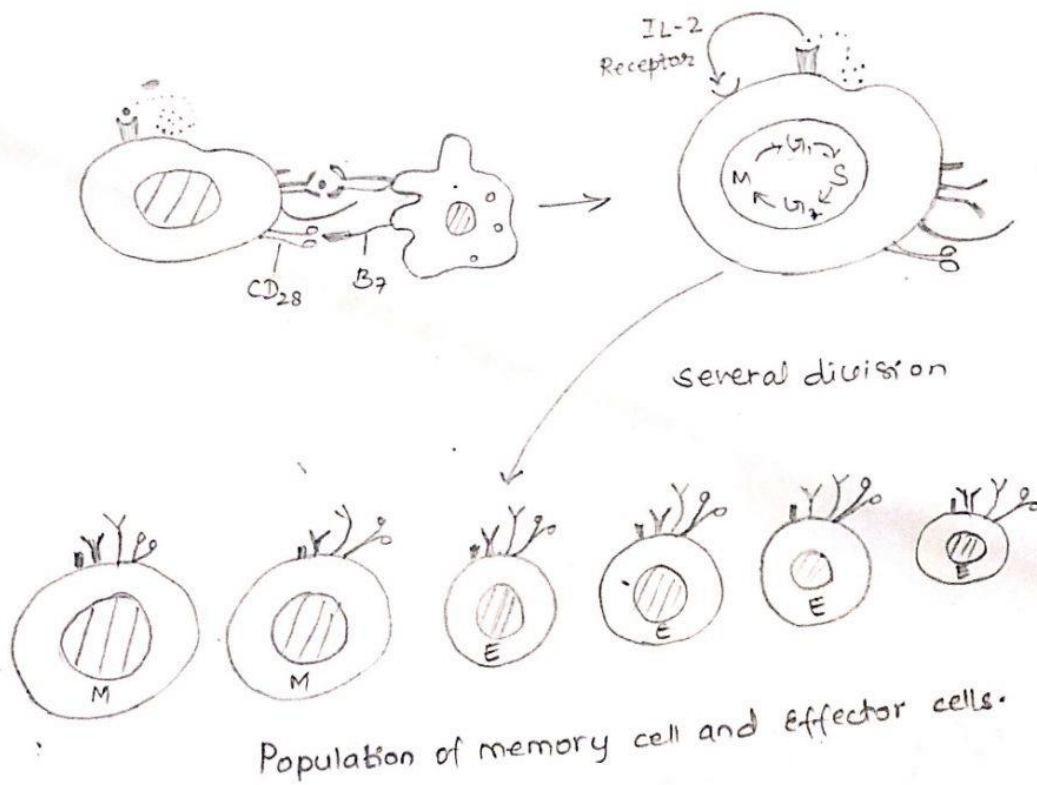 IL-2
Receptor
G₁
M S
G₂
CD₂₈ B₇
several division
M M E E E E
Population of memory cell and Effector cells.